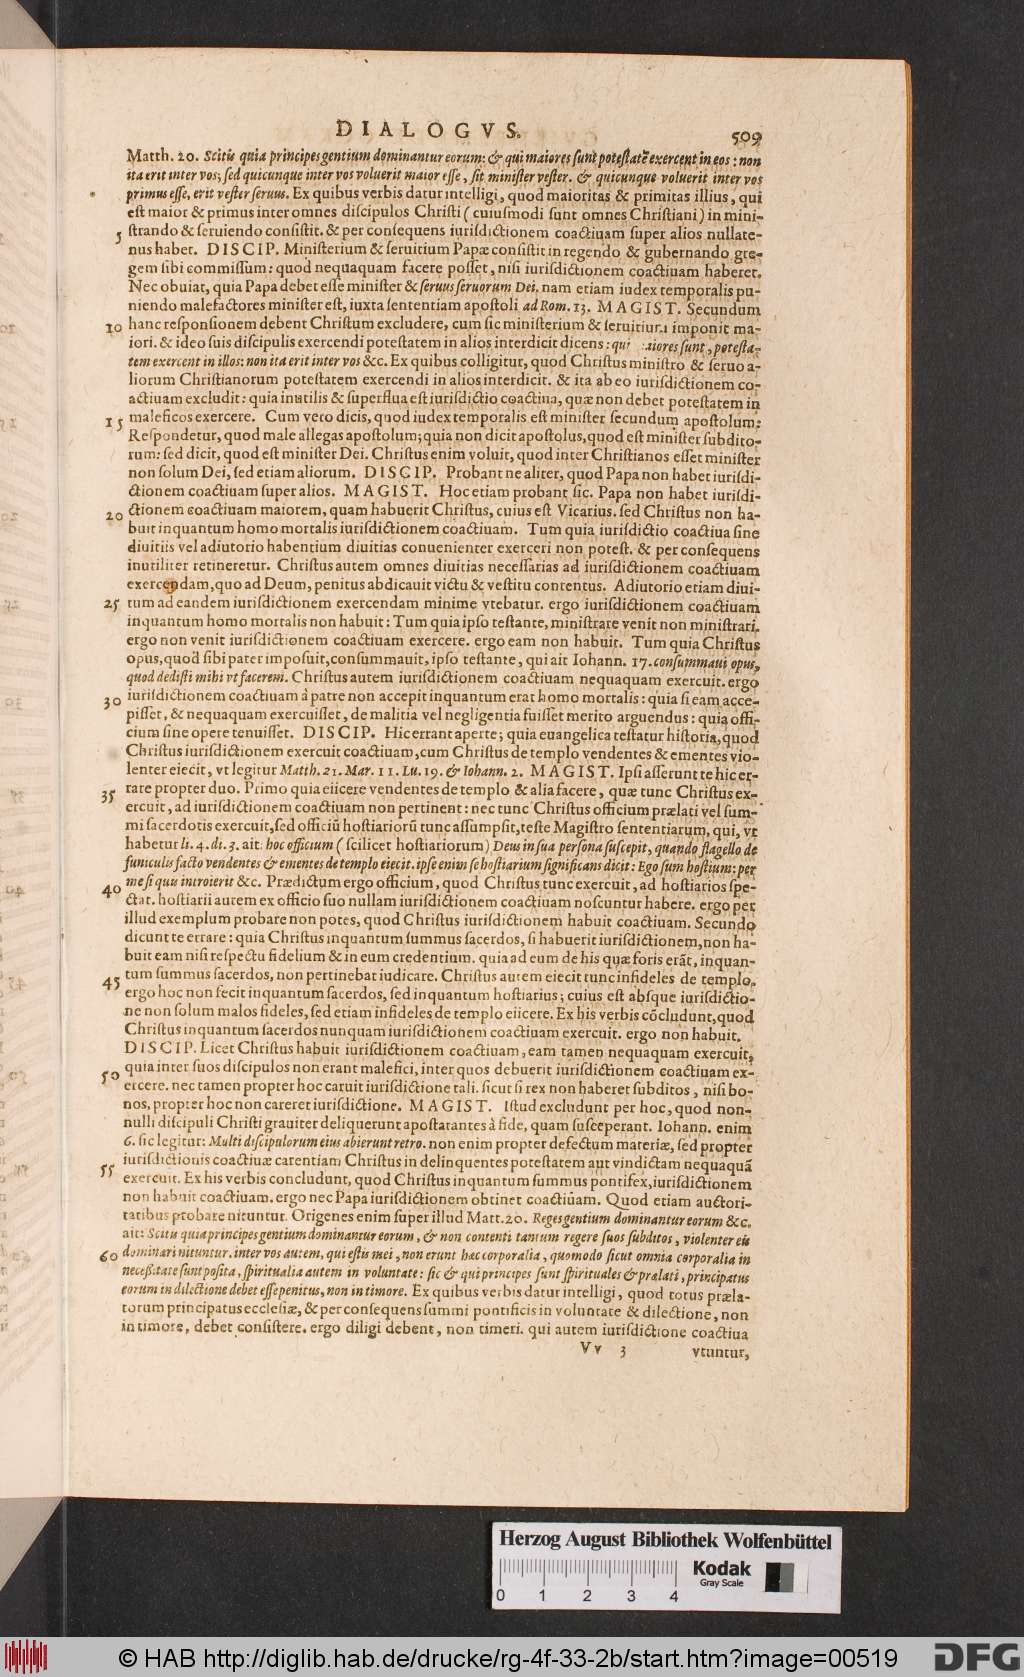 DIALOGVS. 509
Matth. 20. Scitis quia principes gentium dominantur eorum: & qui maiores sunt potestatē exercent in eos: non
ita erit inter vos; sed quicunque inter vos voluerit maior esse, sit minister vester. & quicunque voluerit inter vos
primus esse, erit vester seruus. Ex quibus verbis datur intelligi, quod maioritas & primitas illius, qui
est maior & primus inter omnes discipulos Christi (cuiusmodi sunt omnes Christiani) in mini-
5 strando & seruiendo consistit. & per consequens iurisdictionem coactiuam super alios nullate-
nus habet. DISCIP. Ministerium & seruitium Papæ consistit in regendo & gubernando gre-
gem sibi commissum: quod nequaquam facere posset, nisi iurisdictionem coactiuam haberet.
Nec obuiat, quia Papa debet esse minister & seruus seruorum Dei. nam etiam iudex temporalis pu-
niendo malefactores minister est, iuxta sententiam apostoli ad Rom. 13. MAGIST. Secundum
10 hanc responsionem debent Christum excludere, cum sic ministerium & seruitium imponit ma-
iori. & ideo suis discipulis exercendi potestatem in alios interdicit dicens: qui aiores sunt, potesta-
tem exercent in illos: non ita erit inter vos &c. Ex quibus colligitur, quod Christus ministro & seruo a-
liorum Christianorum potestatem exercendi in alios interdicit. & ita ab eo iurisdictionem co-
actiuam excludit: quia inutilis & superflua est iurisdictio coactiua, quæ non debet potestatem in
15 maleficos exercere. Cum vero dicis, quod iudex temporalis est minister secundum apostolum:
Respondetur, quod male allegas apostolum; quia non dicit apostolus, quod est minister subdito-
rum: sed dicit, quod est minister Dei. Christus enim voluit, quod inter Christianos esset minister
non solum Dei, sed etiam aliorum. DISCIP. Probant ne aliter, quod Papa non habet iurisdi-
ctionem coactiuam super alios. MAGIST. Hoc etiam probant sic. Papa non habet iurisdi-
20 ctionem coactiuam maiorem, quam habuerit Christus, cuius est Vicarius. sed Christus non ha-
buit inquantum homo mortalis iurisdictionem coactiuam. Tum quia iurisdictio coactiua sine
diuitiis vel adiutorio habentium diuitias conuenienter exerceri non potest. & per consequens
inutiliter retineretur. Christus autem omnes diuitias necessarias ad iurisdictionem coactiuam
exercendam, quo ad Deum, penitus abdicauit victu & vestitu contentus. Adiutorio etiam diui-
25 tum ad eandem iurisdictionem exercendam minime vtebatur. ergo iurisdictionem coactiuam
inquantum homo mortalis non habuit: Tum quia ipso testante, ministrare venit non ministrari.
ergo non venit iurisdictionem coactiuam exercere. ergo eam non habuit. Tum quia Christus
opus, quod sibi pater imposuit, consummauit, ipso testante, qui ait Iohann. 17. consummaui opus,
quod dedisti mihi vt facerem. Christus autem iurisdictionem coactiuam nequaquam exercuit. ergo
30 iurisdictionem coactiuam à patre non accepit inquantum erat homo mortalis: quia si eam acce-
pisset, & nequaquam exercuisset, de malitia vel negligentia fuisset merito arguendus: quia offi-
cium sine opere tenuisset. DISCIP. Hic errant aperte; quia euangelica testatur historia, quod
Christus iurisdictionem exercuit coactiuam, cum Christus de templo vendentes & ementes vio-
lenter eiecit, vt legitur Matth. 21. Mar. 11. Lu. 19. & Iohann. 2. MAGIST. Ipsi asserunt te hic er-
35 rare propter duo. Primo quia eiicere vendentes de templo & alia facere, quæ tunc Christus ex-
ercuit, ad iurisdictionem coactiuam non pertinent: nec tunc Christus officium prælati vel sum-
mi sacerdotis exercuit, sed officiū hostiariorū tunc assumpsit, teste Magistro sententiarum, qui, vt
habetur li. 4. di. 3. ait: hoc officium (scilicet hostiariorum) Deus in sua persona suscepit, quando flagello de
funiculis facto vendentes & ementes de templo eiecit. ipse enim se hostiarium significans dicit: Ego sum hostium: per
40 me si quis introierit &c. Prædictum ergo officium, quod Christus tunc exercuit, ad hostiarios spe-
ctat. hostiarii autem ex officio suo nullam iurisdictionem coactiuam noscuntur habere. ergo per
illud exemplum probare non potes, quod Christus iurisdictionem habuit coactiuam. Secundo
dicunt te errare: quia Christus inquantum summus sacerdos, si habuerit iurisdictionem, non ha-
buit eam nisi respectu fidelium & in eum credentium. quia ad eum de his quæ foris erāt, inquan-
45 tum summus sacerdos, non pertinebat iudicare. Christus autem eiecit tunc infideles de templo.
ergo hoc non fecit inquantum sacerdos, sed inquantum hostiarius; cuius est absque iurisdictio-
ne non solum malos fideles, sed etiam infideles de templo eiicere. Ex his verbis cōcludunt, quod
Christus inquantum sacerdos nunquam iurisdictionem coactiuam exercuit. ergo non habuit.
DISCIP. Licet Christus habuit iurisdictionem coactiuam, eam tamen nequaquam exercuit,
50 quia inter suos discipulos non erant malefici, inter quos debuerit iurisdictionem coactiuam ex-
ercere. nec tamen propter hoc caruit iurisdictione tali. sicut si rex non haberet subditos, nisi bo-
nos, propter hoc non careret iurisdictione. MAGIST. Istud excludunt per hoc, quod non-
nulli discipuli Christi grauiter deliquerunt apostatantes à fide, quam susceperant. Iohann. enim
6. sic legitur: Multi discipulorum eius abierunt retro. non enim propter defectum materiæ, sed propter
55 iurisdictionis coactiuæ carentiam Christus in delinquentes potestatem aut vindictam nequaquā
exercuit. Ex his verbis concludunt, quod Christus inquantum summus pontifex, iurisdictionem
non habuit coactiuam. ergo nec Papa iurisdictionem obtinet coactiuam. Quod etiam auctori-
tatibus probare nituntur. Origenes enim super illud Matt. 20. Reges gentium dominantur eorum &c.
ait: Scitis quia principes gentium dominantur eorum, & non contenti tantum regere suos subditos, violenter eis
60 dominari nituntur. inter vos autem, qui estis mei, non erunt hæc corporalia, quomodo sicut omnia corporalia in
necessitate sunt posita, spiritualia autem in voluntate: sic & qui principes sunt spirituales & prælati, principatus
eorum in dilectione debet esse penitus, non in timore. Ex quibus verbis datur intelligi, quod totus præla-
torum principatus ecclesiæ, & per consequens summi pontificis in voluntate & dilectione, non
in timore, debet consistere. ergo diligi debent, non timeri. qui autem iurisdictione coactiua
Vv 3 vtuntur,
Herzog August Bibliothek Wolfenbüttel
Kodak
Gray Scale
0 1 2 3 4
© HAB http://diglib.hab.de/drucke/rg-4f-33-2b/start.htm?image=00519 DFG